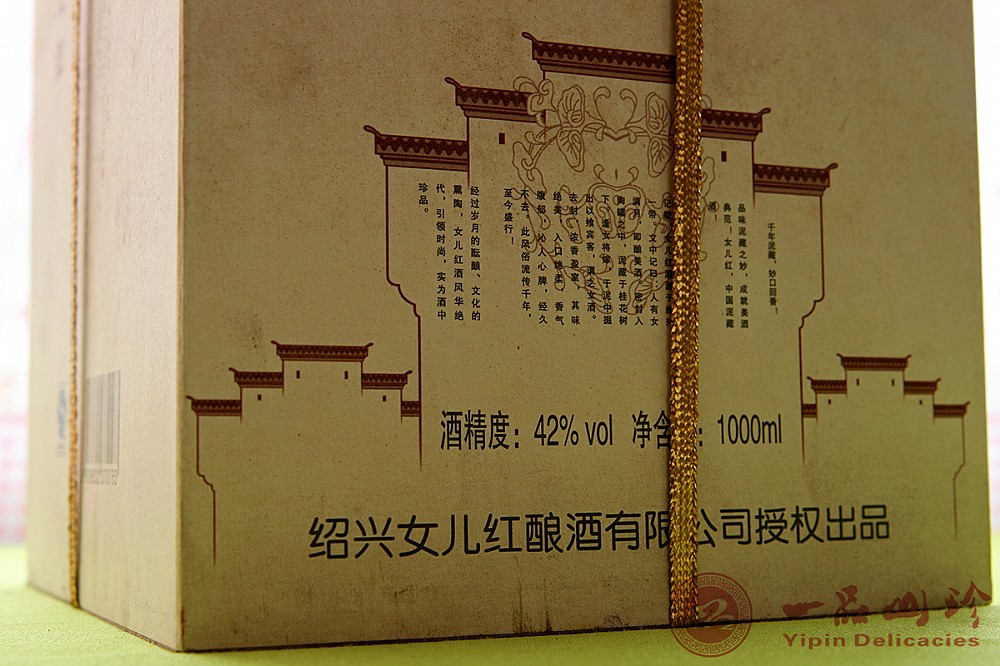 千年泥藏，妙口回香！
品味泥藏之妙，成就美酒
典范！女儿红，中国泥藏
酒！
女儿红
一带。文中记曰：人有女
满月，即酿美酒，密封入
陶罐之中，泥藏于桂花树
下。逢女将嫁，于泥中掘
出以候宾客，谓之女酒。
去封，浓香盈室，其味
绝美，入口绵柔，香气
馥郁，沁人心脾，经久
不去。此风俗流传千年，
至今盛行！
经过岁月的酝酿、文化的
熏陶，女儿红酒风华绝
代，引领时尚，实为酒中
珍品。
酒精度：42% vol 净含：1000ml
绍兴女儿红酿酒有限公司授权出品
一品山珍
Yipin Delicacies